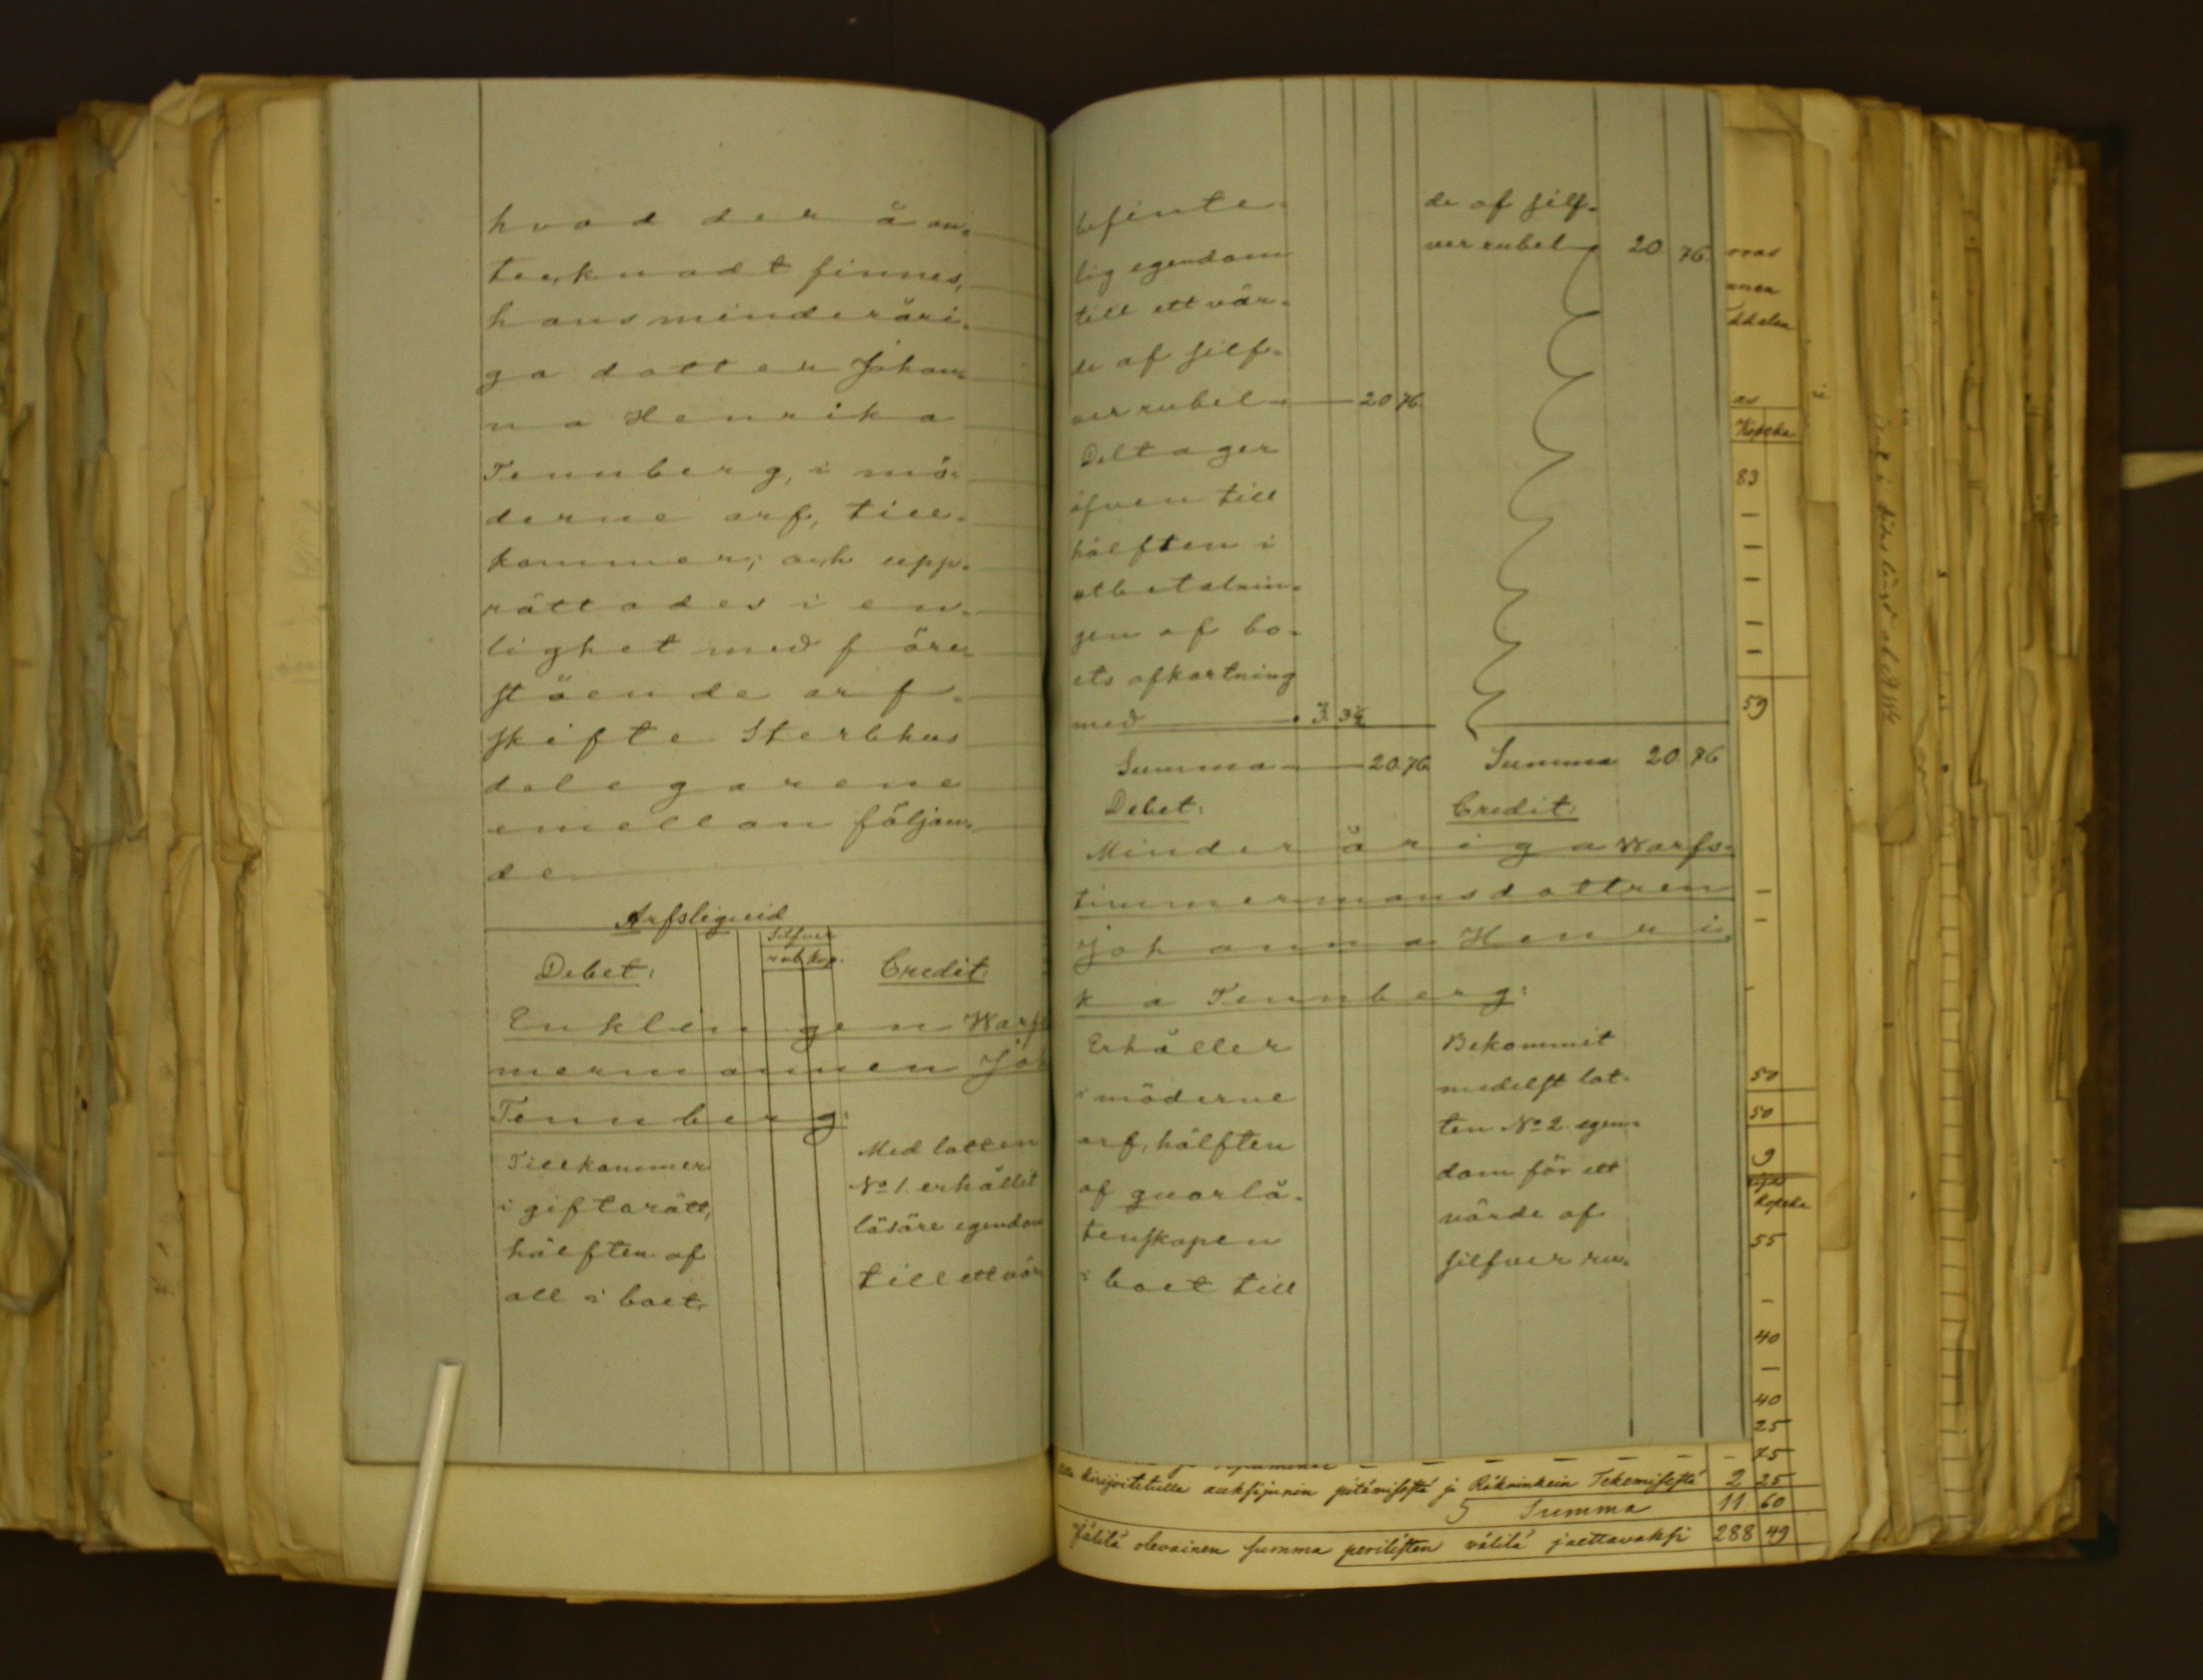 hvad der å an-
tecknadt finnes,
hans minderåri-
ga dotter Johan-
na Henrika
Tennberg, i mö-
derne arf, till-
kommer; och upp-
rättades i en-
lighet med före-
stående arf-
skifte Sterbhus
delegarene
emellan följan-
de
Arfsliquid
Silfver
rub. kop.
Debet: Credit:
Enklingen Warfs
mermannen Joh
Tennberg:
Tillkommer
i giftorätt,
hälften af
all i boet
Med lotten
No 1. erhållit
lösöre egendom
till ett vär
befinte-
lig egendom
till ett vär-
de af silf-
ver rubel 20 76.
Deltager
äfven till
hälften i
utbetalnin-
gen af bo-
ets afkortning
med 3. 3½
Summa 20. 76.
de af silf-
ver rubel 20 76.
Summa 20. 76
Debet: Credit:
Minderåriga Warfs-
timmermansdottren
Johanna Henri-
ka Tennberg:
Erhåller
i möderne
arf, hälften
af qvarlå-
tenskapen
i boet till
Bekommit
medelst lot-
ten No 2. egen-
dom för ett
värde af
silfver ru-
Kopeka
83
59
50
50
9
kopeka
55
40
40
25
75
kirjoitetulle auksijunin pitämisestä ja Räkninkein Tekemisestä 2 25
Summa 11 60
Jälilä olevainen summa perillisten välilä jaettavaksi 288 49